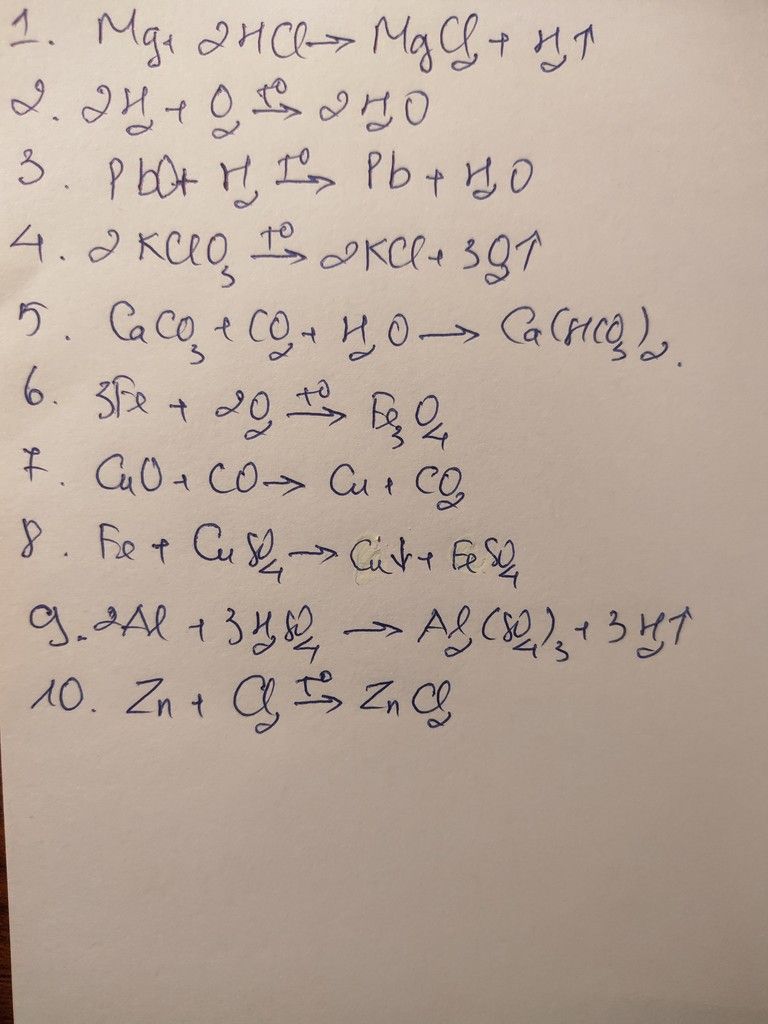 1. Mg + 2HCl → MgCl₂ + H₂↑
2. 2H₂ + O₂ →(t°) 2H₂O
3. PbO + H₂ →(t°) Pb + H₂O
4. 2KClO₃ →(t°) 2KCl + 3O₂↑
5. CaCO₃ + CO₂ + H₂O → Ca(HCO₃)₂.
6. 3Fe + 2O₂ →(t°) Fe₃O₄
7. CuO + CO → Cu + CO₂
8. Fe + CuSO₄ → Cu↓ + FeSO₄
9. 2Al + 3H₂SO₄ → Al₂(SO₄)₃ + 3H₂↑
10. Zn + Cl₂ →(t°) ZnCl₂